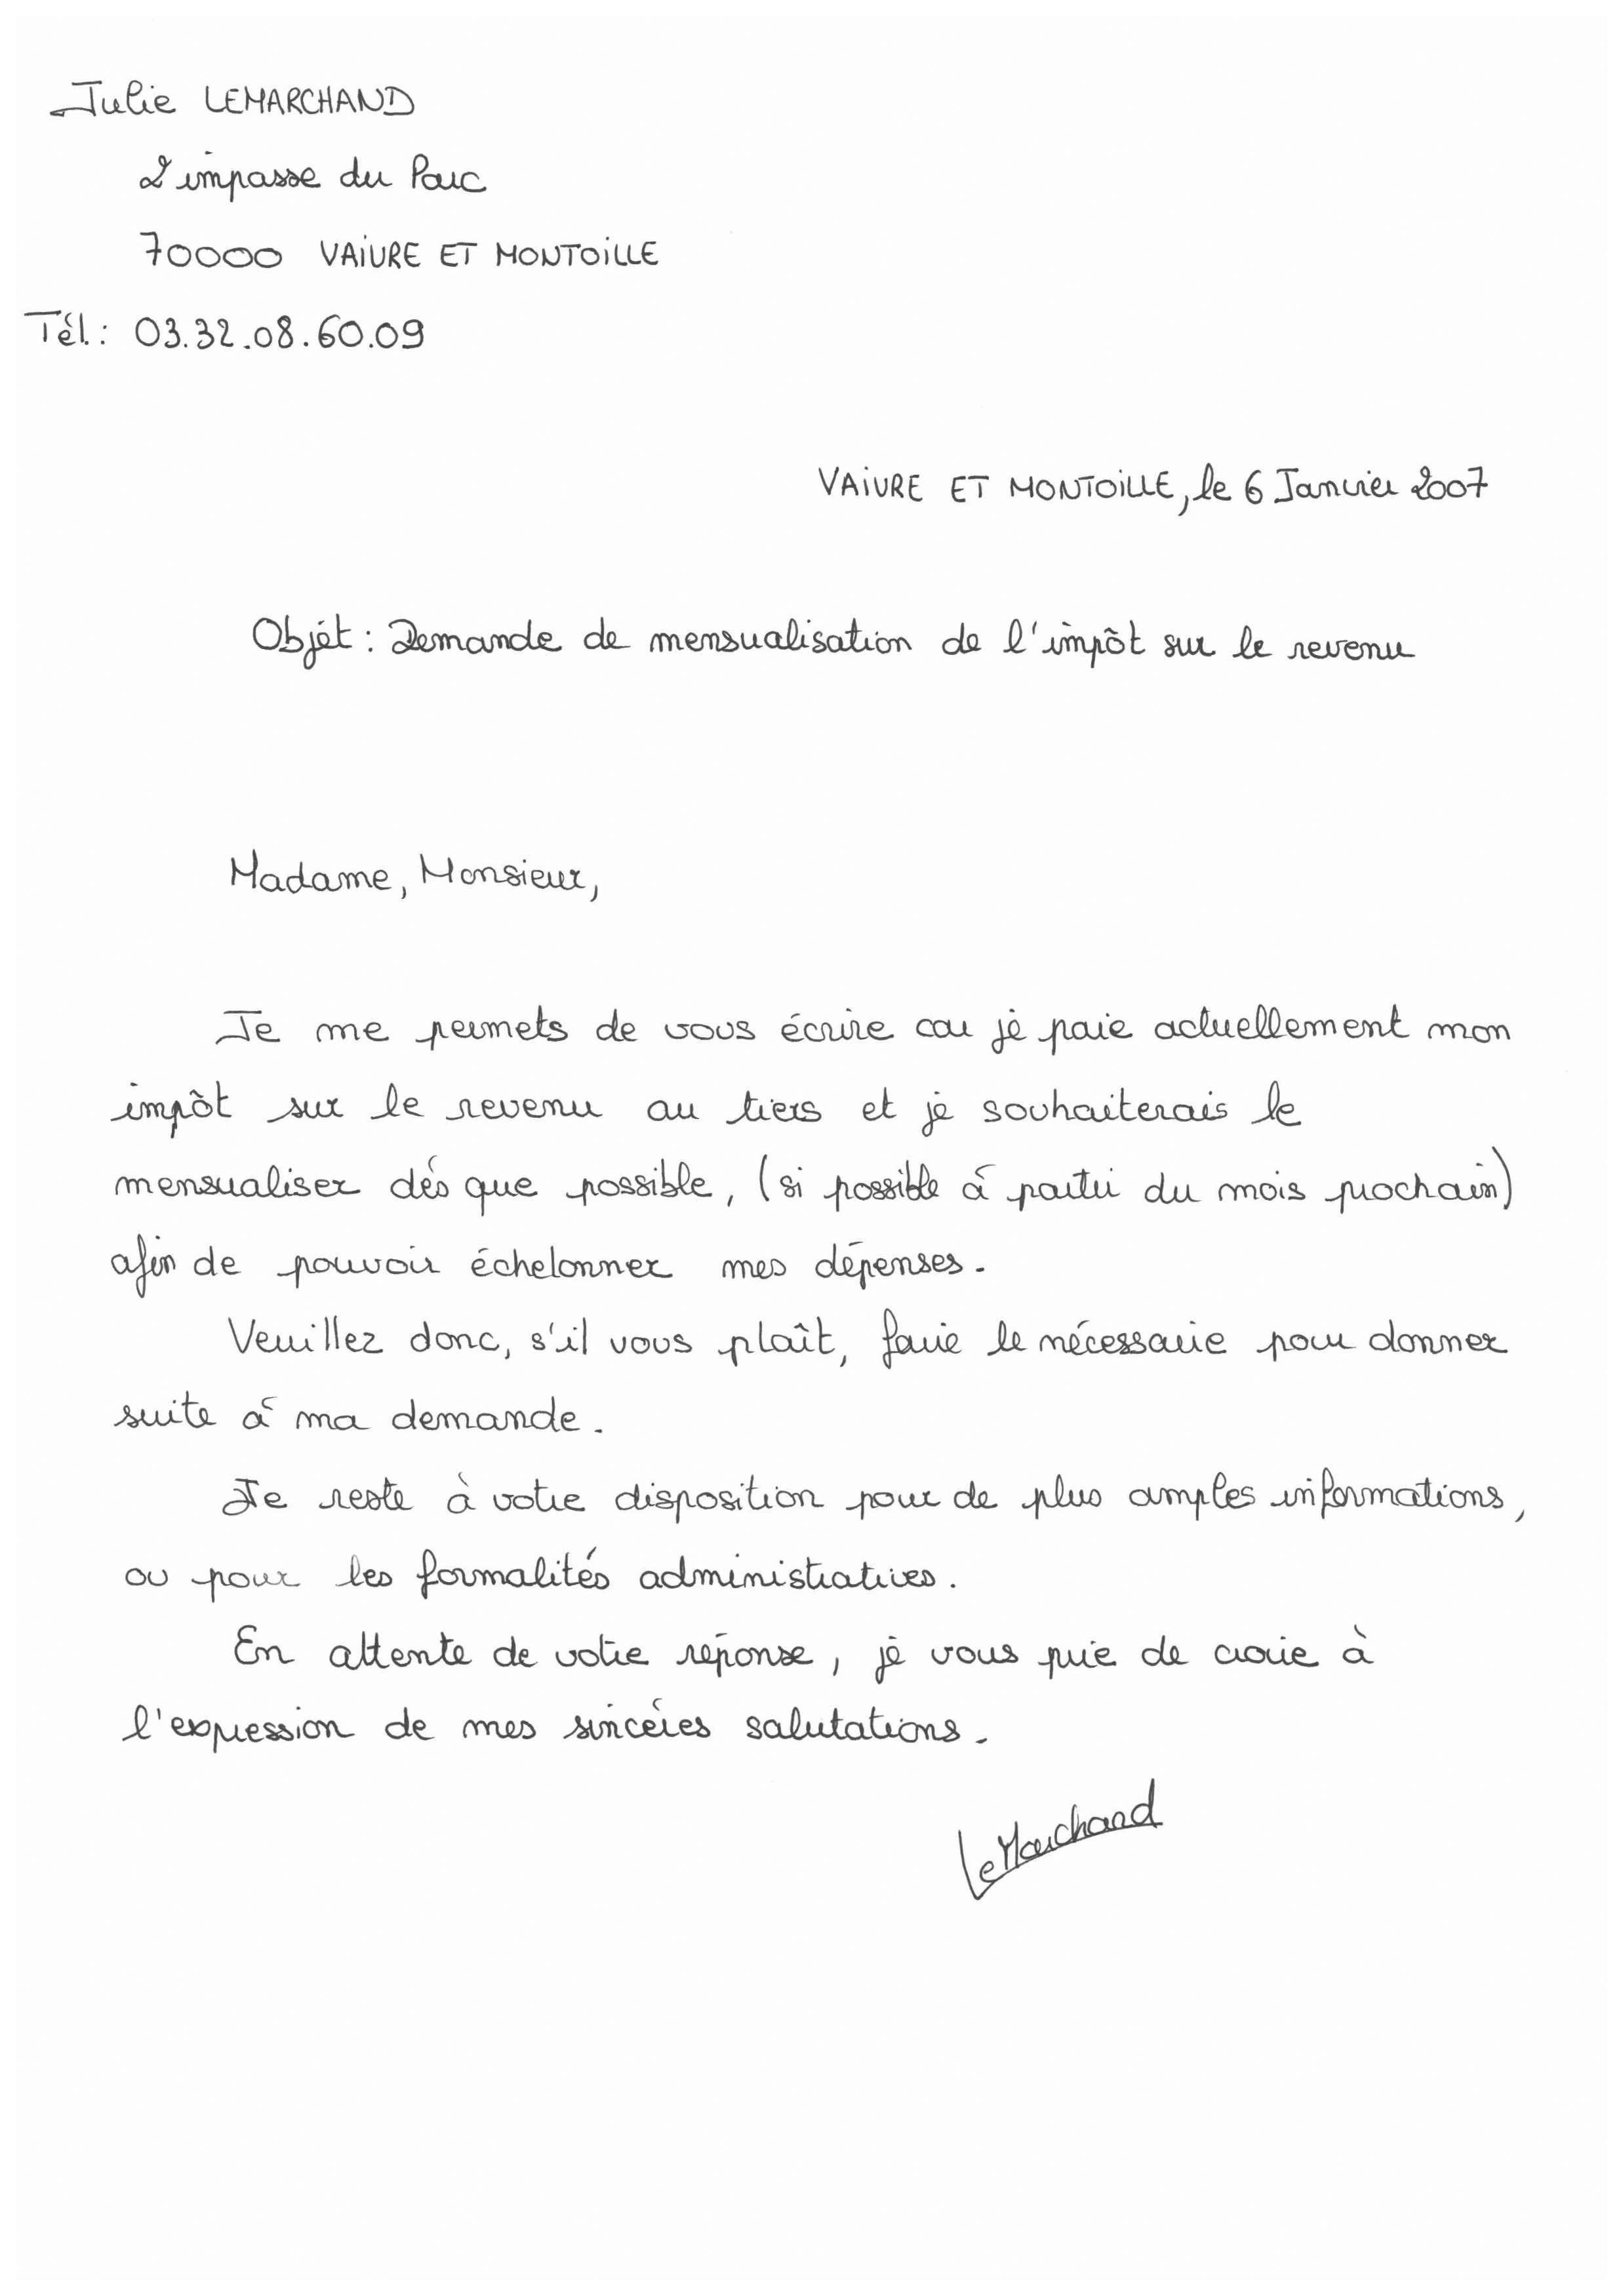 Julie LEMARCHAND
2 impasse du Parc
70000 VAIVRE ET MONTOILLE
Tél.: 03.32.08.60.09
VAIVRE ET MONTOILLE, le 6 Janvier 2007
Objet : Demande de mensualisation de l'impôt sur le revenu
Madame, Monsieur,
Je me permets de vous écrire car je paie actuellement mon
impôt sur le revenu au tiers et je souhaiterais le
mensualiser dès que possible, (si possible à partir du mois prochain)
afin de pouvoir échelonner mes dépenses.
Veuillez donc, s'il vous plaît, faire le nécessaire pour donner
suite à ma demande.
Je reste à votre disposition pour de plus amples informations,
ou pour les formalités administratives.
En attente de votre réponse, je vous prie de croire à
l'expression de mes sincères salutations.
LeMarchand